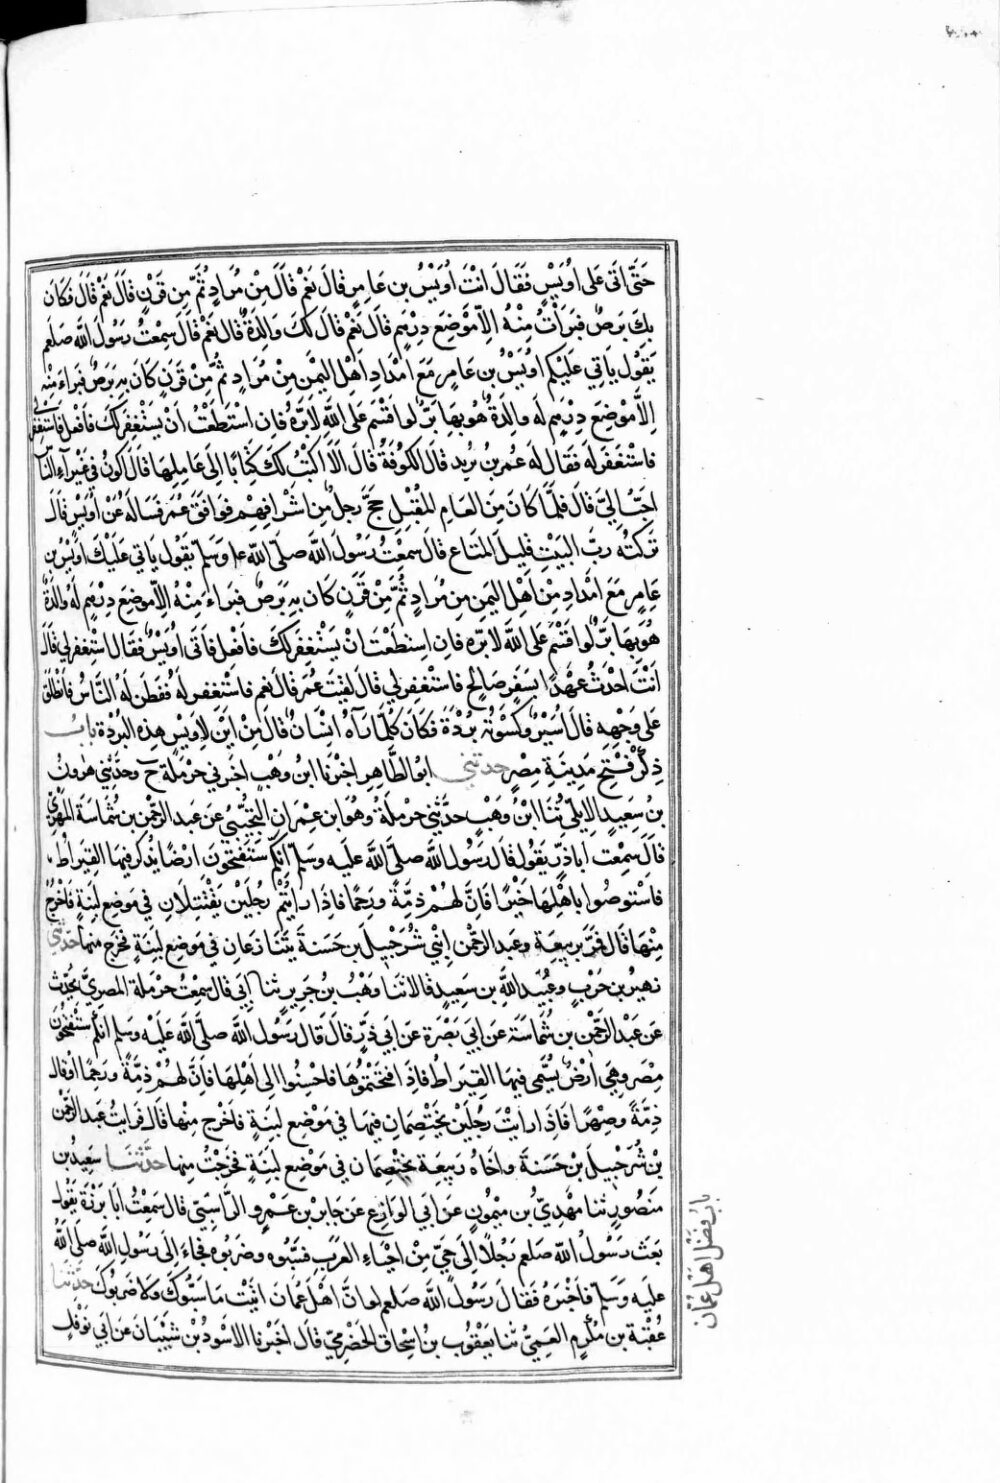 حَتَّى اتَى عَلى اُوَيْسٍ فَقَالَ انْتَ اُوَيْسُ بن عَامِرٍ قالَ نَعَمْ قالَ مِنْ مُرَادٍ ثُمَّ مِن قَرَنٍ قالَ نَعَمْ قالَ فكانَ
بِكَ بَرَصٌ فبَرَأتَ مِنْهُ اِلاّ مَوْضِعَ دِرْهَمٍ قالَ نَعَمْ قالَ لكَ وَالِدَةٌ قالَ نَعَمْ قالَ سَمِعْتُ رَسُولَ اللّه صَلعَم
يَقُولُ ياتي عَلَيْكم اُوَيْسُ بن عَامِر مَعَ امْدَادِ اَهْلِ اليَمَنِ مِنْ مُرَادٍ ثُمَّ مِنْ قَرَنٍ كانَ بِهِ بَرَصٌ فبَراءَ مِنْه
اِلاّ مَوْضِعَ دِرْهَمٍ لَه والِدَةٌ هُوَ بِهَا بَرٌّ لَو اقْسَمَ عَلى اللّهِ لابَرَّهُ فاِنِ اسْتَطَعْتَ اَنْ يَسْتَغْفِرَ لكَ فافْعَل فاسْتغفِر لي
فاسْتَغفَرَ لَه فقَالَ لَه عُمَر اين تُريد قالَ الكُوفَةَ قالَ الا اكْتُبُ لكَ كِتَابًا اِلى عَامِلِهَا قالَ اكونُ في غَبْرآءِ النّاسِ
احَبُّ اِليَّ قالَ فلَمَّا كانَ مِنَ العَامِ المُقْبِلِ حَجَّ رَجُلٌ مِن اشْرَافِهِمْ فوَافَقَ عُمَرَ فسَالَهُ عَنْ اُوَيْسٍ قالَ
تَركتُه ربَّ البَيْتِ قَلِيلَ المَتَاعِ قالَ سَمِعْتُ رَسُولَ اللّه صلّى اللّه علـ وَسَلَّم يَقُولُ يَاتي عَلَيْكَ اُوَيْسُ بن
عَامِر مَعَ امْدادِ مِنْ اَهْلِ اليَمَنِ مِن مُرَادٍ ثُمَّ مِنْ قَرَنٍ كانَ بِهِ بَرَصٌ فبَراءَ مِنْهُ اِلاّ مَوضِعَ دِرْهَمٍ لَهُ وَالدَةٌ
هُوَ بِهَا بَرٌّ لَو اقْسَمَ عَلى اللّه لابَرَّه فاِنِ اسْتطَعْتَ انْ يَسْتَغْفِرَ لكَ فافْعَل فاتى اُوَيْسًا فقَالَ اسْتغفِر لي قالَ
انْتَ احْدَثُ عَهْدًا بِسَفَرٍ صَالِحٍ فاسْتَغْفِر لي قالَ لَقِيتَ عُمَرَ قالَ نَعَم فاسْتَغْفَرَ لَهُ ففَطِنَ لَهُ النَّاسُ فانْطَلَقَ
عَلى وَجْهِهِ قالَ اُسَيْرٌ وكَسَوْتُه بُرْدَةً فكانَ كُلَّمَا رَآهُ اِنْسَانٌ قالَ مِنْ اَيْنَ لِاُوَيْسٍ هذِه البُرْدَة بابُ
ذِكْرِ فَتْحِ مَدِينَةِ مِصْرَ حدثني ابُو الطَّاهِر اخبَرنا ابن وَهْبٍ اخبَرني حَرْمَلَة ح وحَدَّثني هٰرونُ
بنُ سَعِيدٍ الايْليّ ثنا ابْنُ وَهْبٍ حدّثني حَرْملَةُ وهُوَ ابن عِمْرانَ التُّجِيْبيُّ عَن عَبد الرّحمٰن بن شُمَاسَة المَهْريِّ
قالَ سَمِعْتُ اَبا ذَرٍّ يَقُولُ قالَ رَسُولُ اللّه صَلّى اللّه عَلَيه وَسَلّم اِنَّكم سَتَفتَحُونَ ارْضًا يُذكر فيهَا القِيرَاطُ
فاسْتَوصُوا بِاهْلِهَا خَيْرًا فاِنَّ لهُمْ ذِمَّةً ورَحِمًا فاِذَا رَايْتُم رَجُلَيْنِ يَقْتَتِلانِ في مَوْضِعِ لَبِنَةٍ فاخْرُجْ
مِنْهَا قالَ فمَرَّ بِرَبيعَة وعَبدِ الرَّحْمٰنِ ابْنَيْ شُرَحْبيلَ بن حَسَنَةَ يَتنَازَعَانِ في مَوْضِعِ لَبِنَةٍ فخَرَج مِنهَا حَدَّثني
زهَيْرُ بن حَرْبٍ وعُبَيد اللّهِ بن سَعِيدٍ قالا ثنا وَهْبُ بن جَرِيرٍ ثنا ابي قال سَمِعْتُ حَرْمَلة المِصْرِيَّ يحَدِّث
عَن عَبْدِ الرّحْمٰنِ بن شُمَاسَة عَن ابي بَصْرَة عَن ابي ذَرٍّ قالَ قالَ رَسُولُ اللّه صَلّى اللّه عَلَيْه وسَلم انّكم سَتفتَحُونَ
مِصْرَ وهيَ ارْضٌ يُسَمَّى فيهَا القِيرَاطُ فاِذَا فَتَحْتمُوهَا فاحْسِنُوا الى اَهْلِهَا فاِنَّ لهُمْ ذِمَّةً ورَحِمًا اوْ قالَ
ذِمَّةً وصِهْرًا فاِذَا رَايْتَ رَجُلَيْنِ يَخْتَصِمَانِ فيهَا في مَوْضِعِ لَبِنَةٍ فاخْرُج مِنْهَا قالَ فرَايتُ عَبدَ الرّحمٰن
بْنَ شُرَحْبيلَ بْن حَسَنَةَ واخَاهُ رَبِيعَة يَخْتَصِمَانِ في مَوْضِعِ لَبِنَةٍ فخَرَجْتُ مِنهَا حَدَّثنا سَعِيدُ بن
مَنصُورٍ ثنا مَهْديّ بن مَيْمُونٍ عَن ابي الوازِعِ عَن جَابِرِ بن عَمْرٍو الرَّاسِبيّ قالَ سَمِعْتُ ابَا بَرْزَةَ يَقُول
بَعَثَ رَسُولُ اللّه صَلعم رَجُلًا اِلى حَيٍّ مِنْ احْيَاءِ العَرَبِ فسَبُّوه وضَرَبُوه فجَاءَ الى رَسُولِ اللّه صَلى اللّه
علَيه وَسَلّمَ فاخْبَرَهُ فقَالَ رَسُولُ اللّه صَلعم لو انَّ اَهْلَ عُمَانَ اتَيْتَ مَا سَبُّوكَ ولا ضَرَبُوكَ حَدَّثنا
عُقْبَة بن مُكْرَمٍ العَمِّيّ ثنا يَعْقُوبُ بنُ اِسْحَاقَ الحَضْرَميّ قالَ اخبَرَنا الاسْودُ بْنُ شَيْبَانَ عَن ابي نَوْفَلٍ
باب فضل اهل عمان